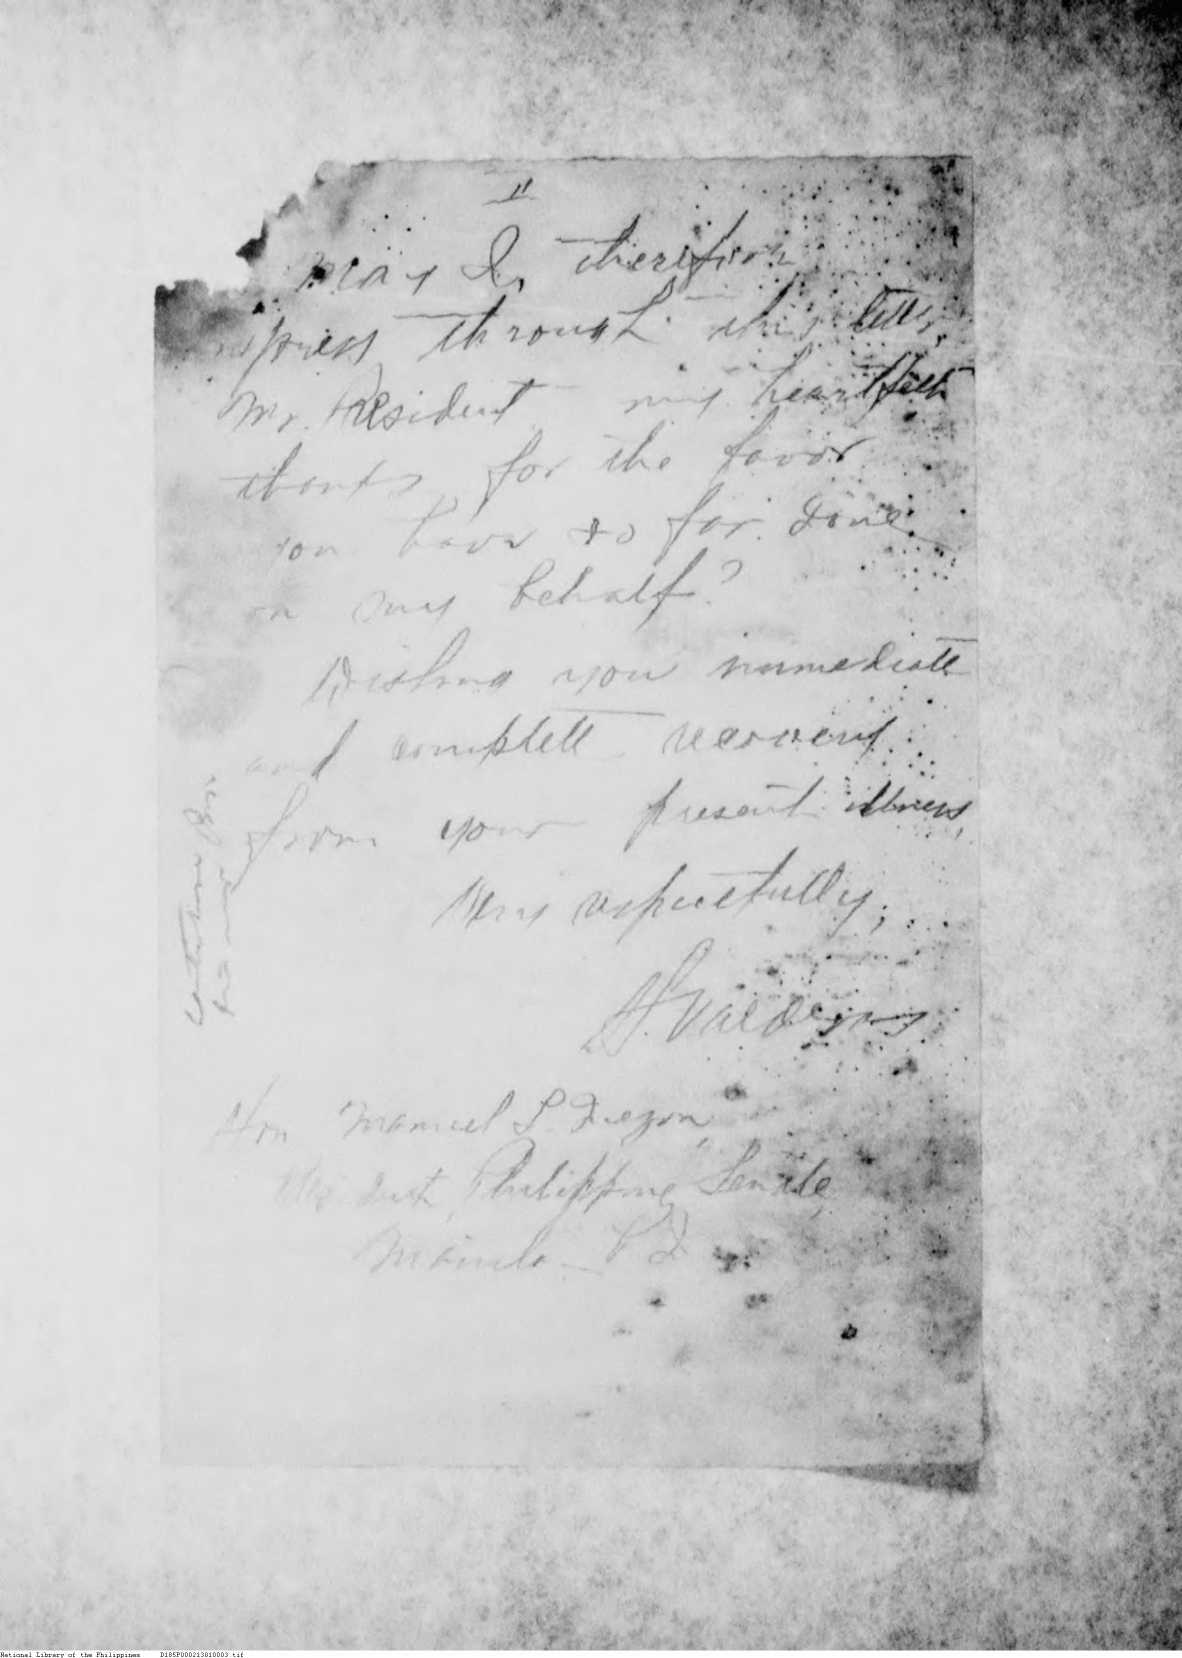 II
May I, therefore
express through this letter,
Mr. President my heartfelt
thanks, for the favor
you have so far done
on my behalf?
Wishing you immediate
and complete recovery
from your present illness,
Very respectfully,
Hon Manuel L. Quezon,
President, Philippine Senate,
Manila P I
National Library of the Philippines D185P000213010003.tif